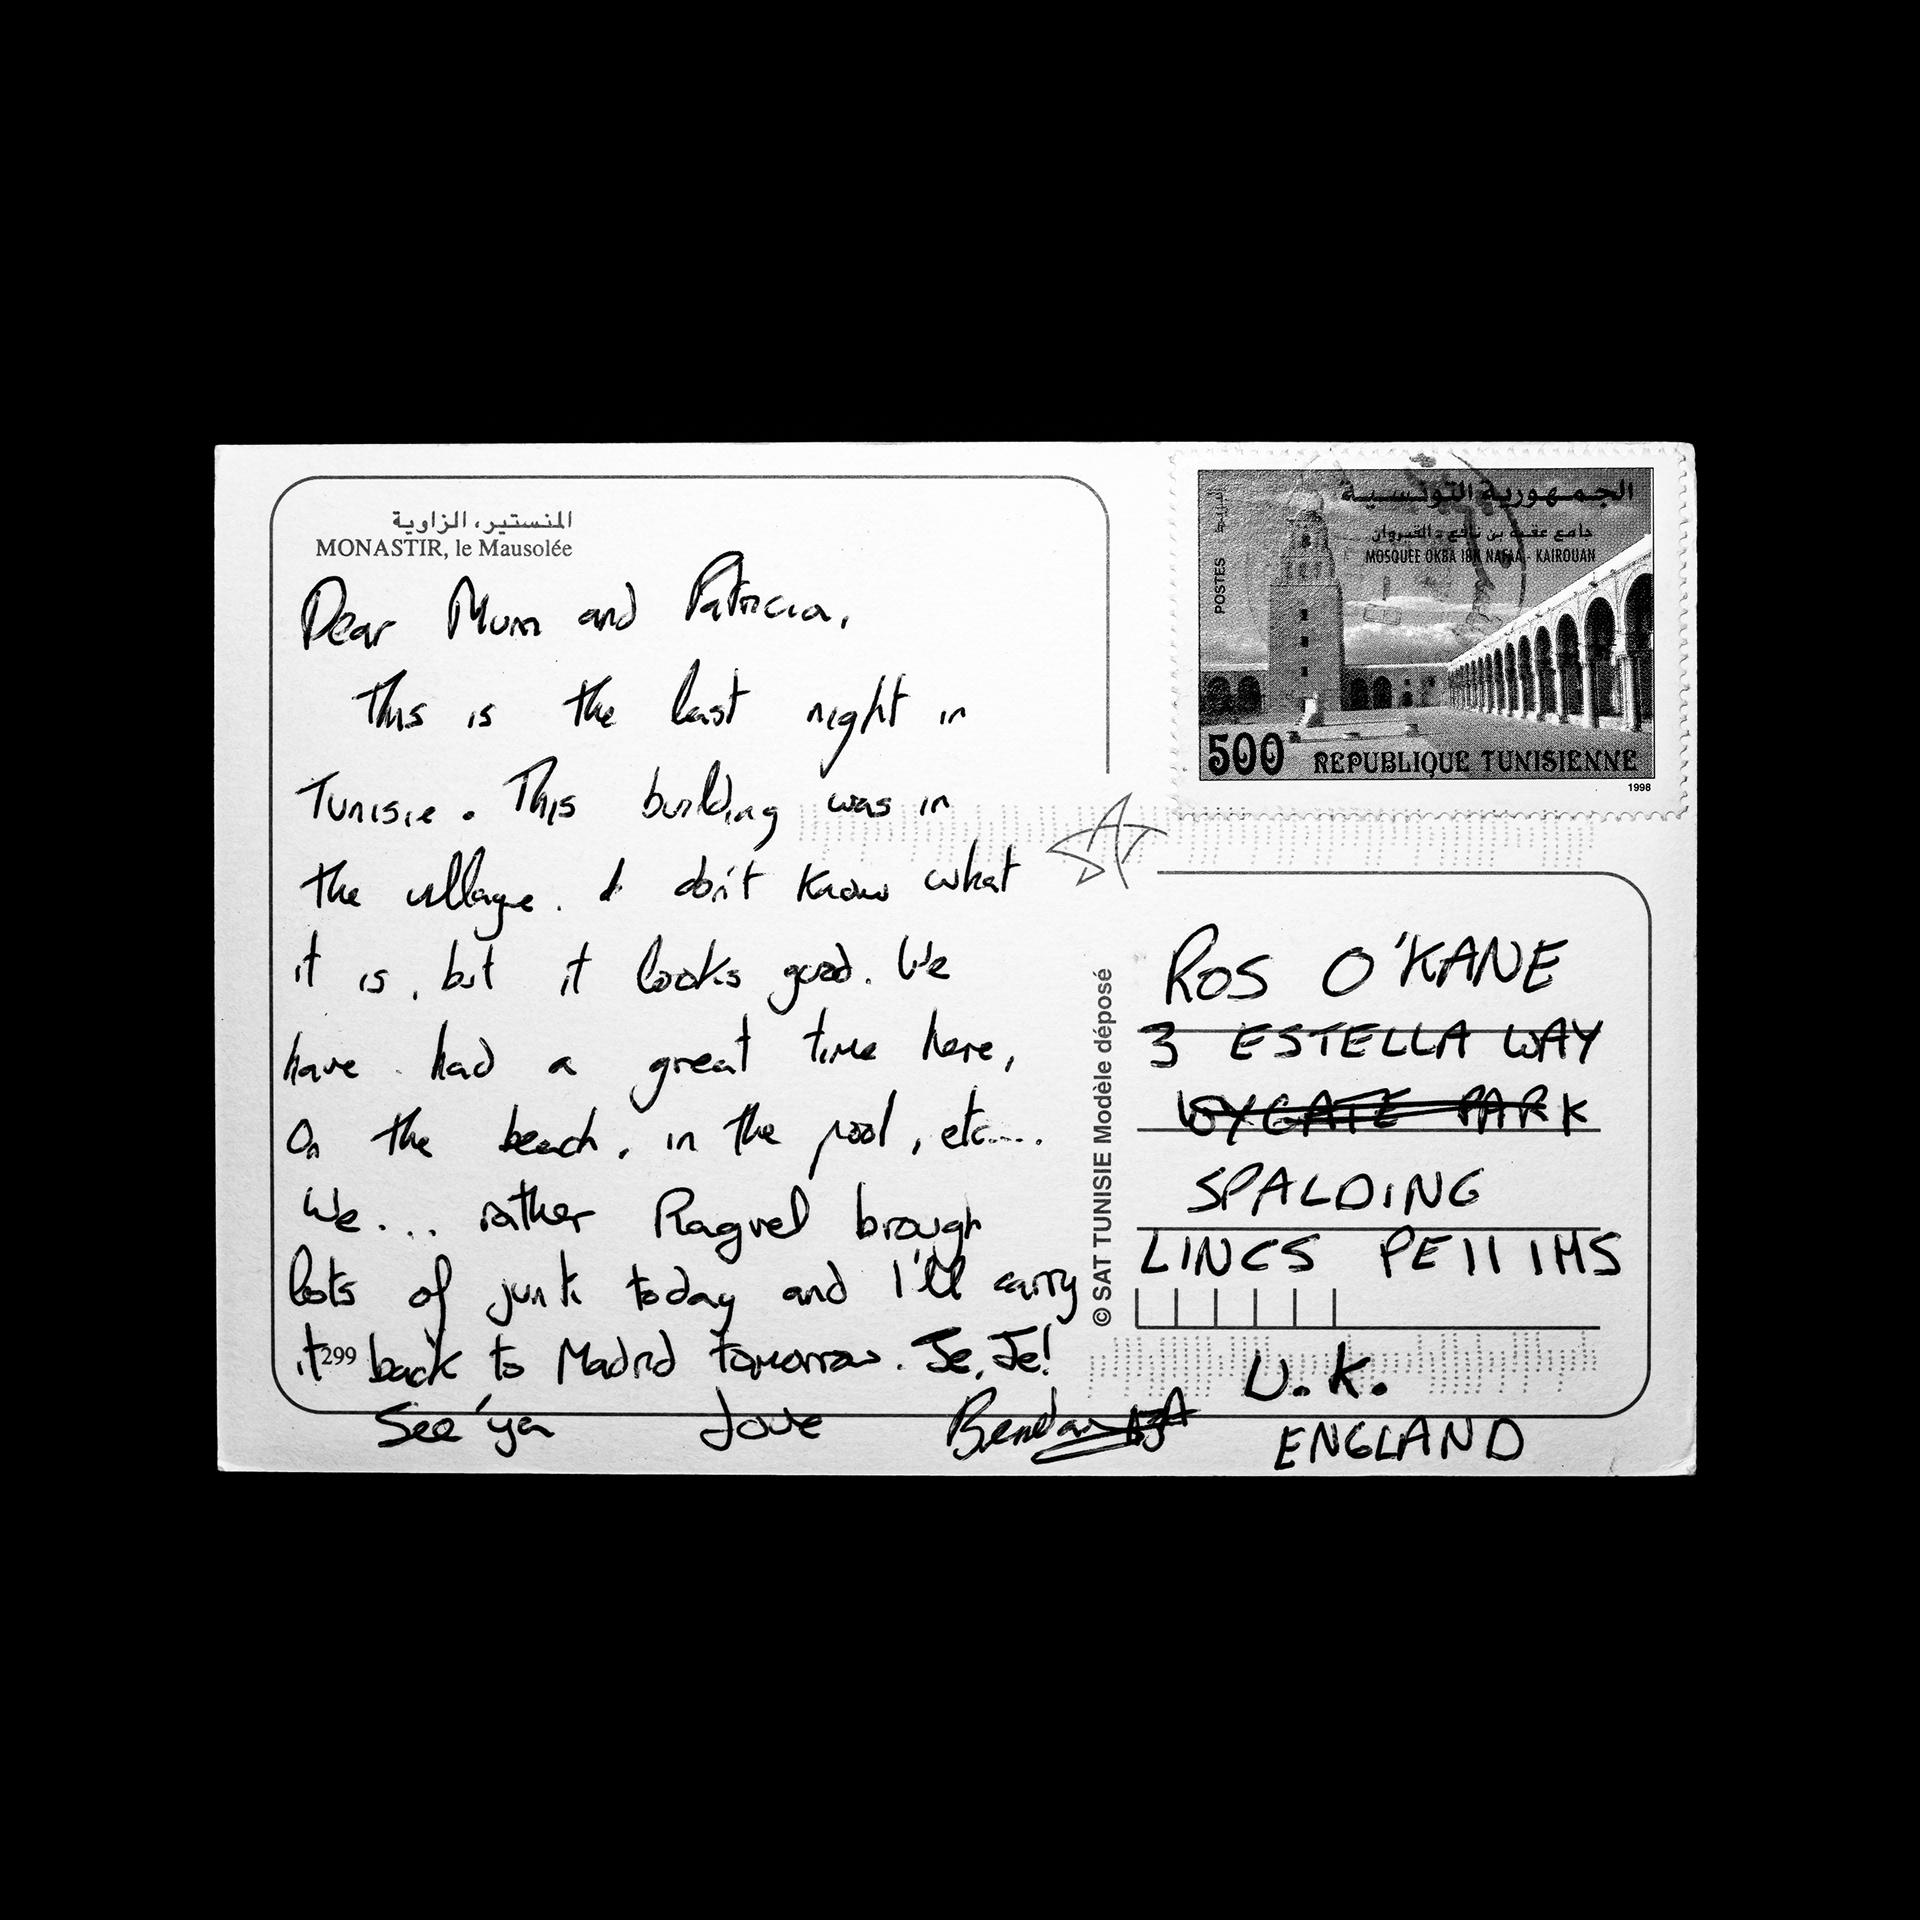 المنستير، الزاوية
MONASTIR, le Mausolée
Dear Mum and Patricia,
This is the last night in
Tunisie. This building was in
the village. I don't know what
it is, but it looks good. We
have had a great time here,
On the beach, in the pool, etc....
We... rather Raquel brough
lots of junk today and I'll carry
it back to Madrid tomorrow. Je, Je!
299
See'ya Love
الجمهورية التونسية
جامع عقبة بن نافع - القيروان
MOSQUEE OKBA IBN NAFAA - KAIROUAN
POSTES
500 REPUBLIQUE TUNISIENNE
1998
SAT
© SAT TUNISIE Modèle déposé
ROS O'KANE
3 ESTELLA WAY
WYGATE PARK
SPALDING
LINCS PE11 1HS
U.K.
ENGLAND